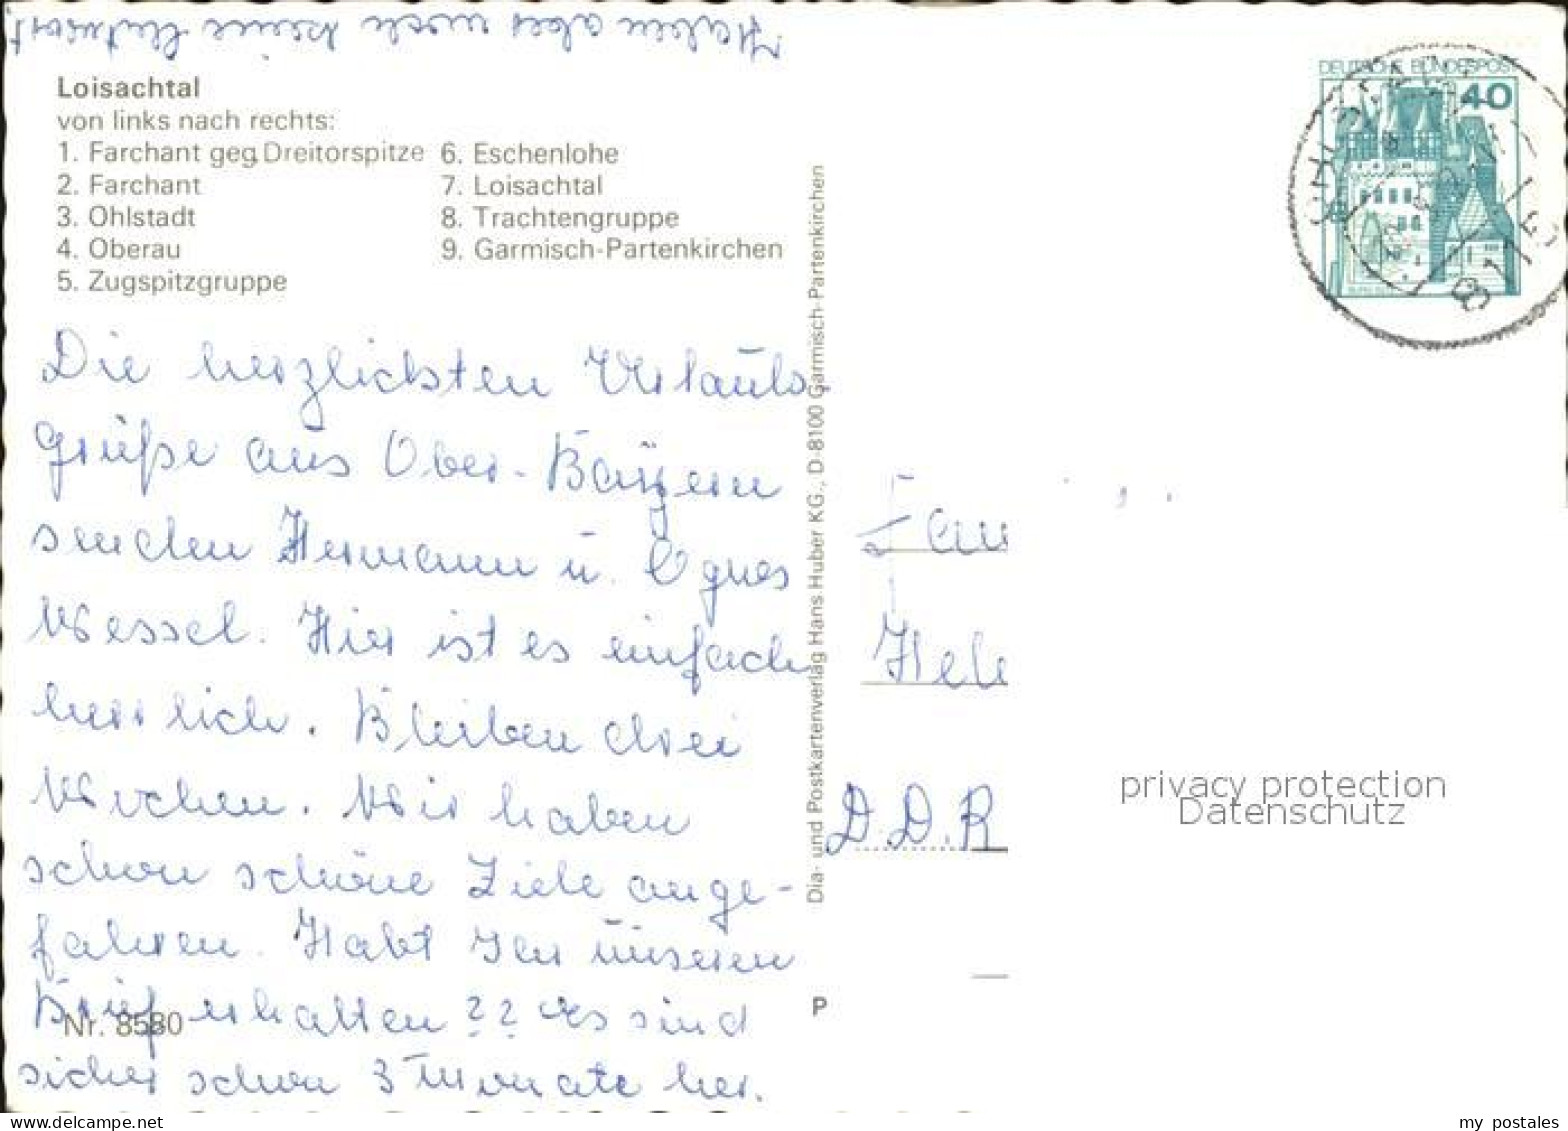 Haben aber noch keine Antwort
Loisachtal
von links nach rechts:
1. Farchant geg. Dreitorspitze
2. Farchant
3. Ohlstadt
4. Oberau
5. Zugspitzgruppe
6. Eschenlohe
7. Loisachtal
8. Trachtengruppe
9. Garmisch-Partenkirchen
Die herzlichsten Urlaubs-
grüße aus Ober-Bayern
senden Hermann u. Agnes
Wessel. Hier ist es einfach
herrlich. Bleiben drei
Wochen. Wir haben
schon schöne Ziele ange-
fahren. Habt Ihr unseren
Brief erhalten ?? Es sind
sicher schon 3 Monate her.
Nr. 8580
Dia- und Postkartenverlag Hans Huber KG., D-8100 Garmisch-Partenkirchen
P
DEUTSCHE BUNDESPOST
40
Fam
Hel
D.D.R
privacy protection
Datenschutz
my postales